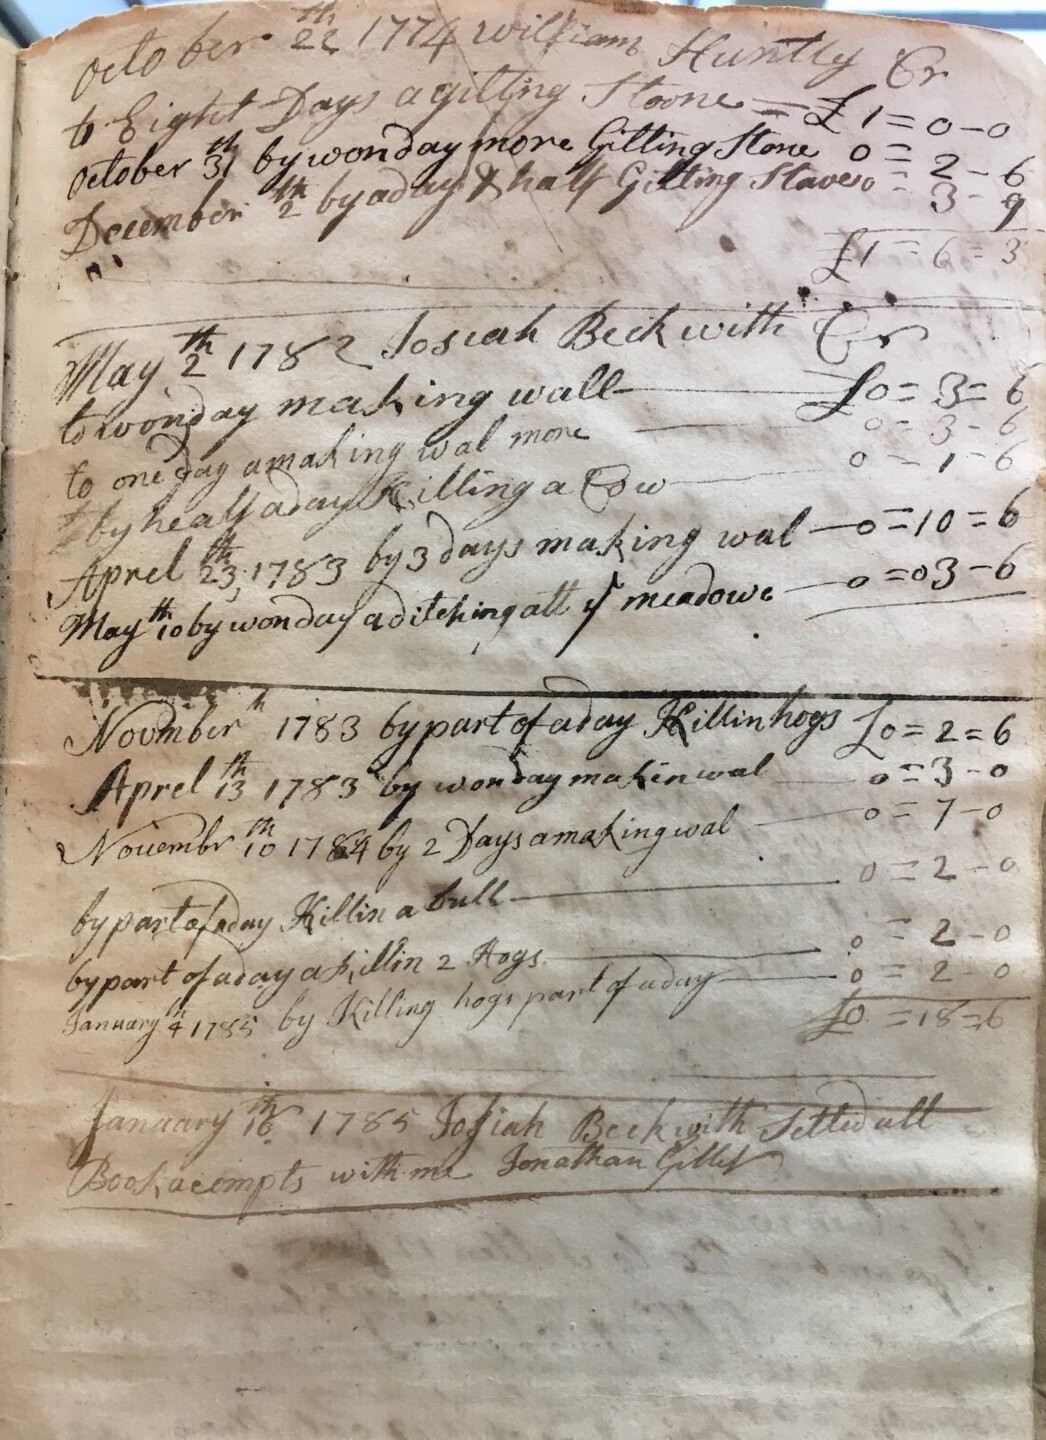 October 22th 1774 William Huntly Cr
to Eight Days a gitting Stoone = £1=0-0
October 31th by wonday more Gitting Stone 0=2-6
December 2th by a day & half Gitting Staves 0=3-9
£1=6=3
May 2th 1782 Josiah Beckwith Cr
to wonday making wall £0=3=6
to one day amaking wal more 0-3-6
by healf aday Killing a Cow 0-1-6
Aprel 23th, 1783 by 3 days making wal 0=10=6
May 10th by wonday a ditching att ye meadowe 0=03-6
Noovmber th 1783 by part of aday Killin hogs £0=2=6
Aprel 13th 1783 by wonday makin wal 0=3-0
Novembr 10th 1784 by 2 Days amaking wal 0=7-0
by part of aday Killin a bull 0=2-0
by part of aday a Killin 2 Hogs 0=2-0
January 4th 1785 by Killing hogs part of aday 0=2-0
£0=18=6
January 16th 1785 Josiah Beckwith Setted all
Book acompts with me Jonathan Gillet